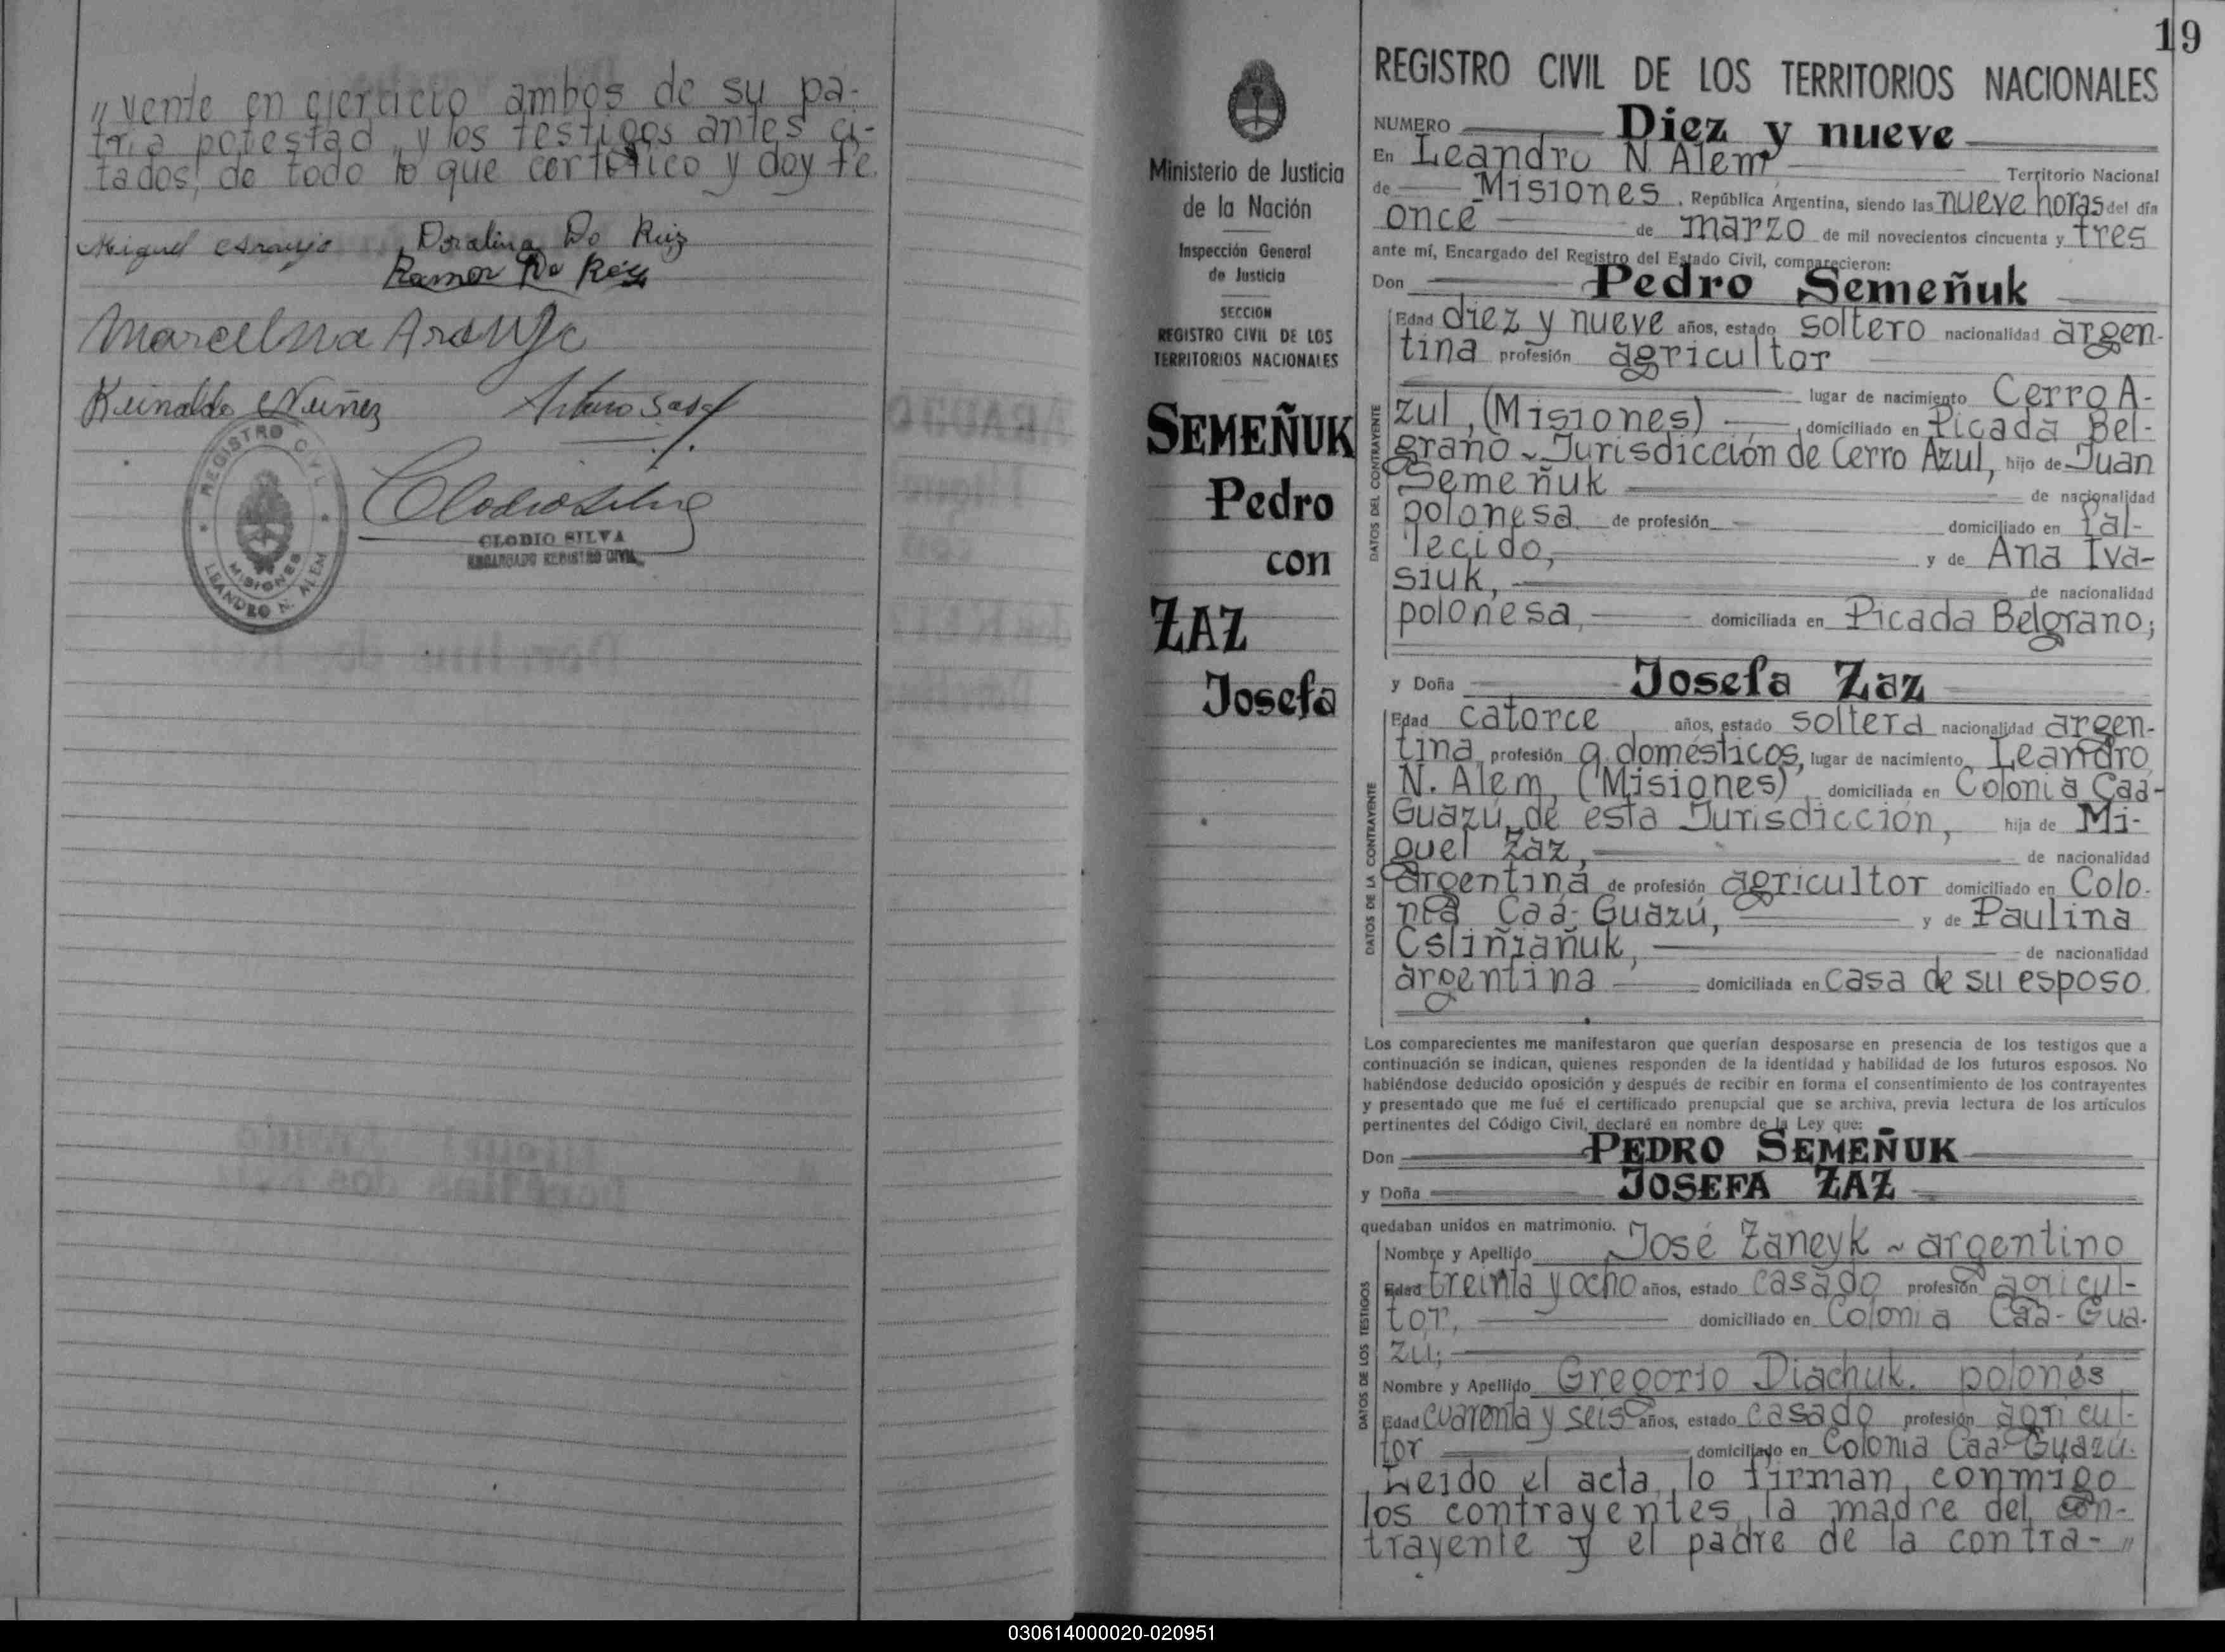 „vente en ejercicio ambos de su pa-
tria potestad, y los testigos antes ci-
tados, de todo lo que certifico y doy fe.
Miguel Araujo Doralina Do Reiz
Ramon Do Reis
Marcelina Araujo
Reinaldo Nuñez Arturo
REGISTRO CIVIL
MISIONES
LEANDRO N. ALEM
Clodio Silva
CLODIO SILVA
ENCARGADO REGISTRO CIVIL
19
Ministerio de Justicia
de la Nación
Inspección General
de Justicia
SECCION
REGISTRO CIVIL DE LOS
TERRITORIOS NACIONALES
SEMEÑUK
Pedro
con
ZAZ
Josefa
REGISTRO CIVIL DE LOS TERRITORIOS NACIONALES
NUMERO Diez y nueve
En Leandro N Alem Territorio Nacional
de Misiones, República Argentina, siendo las nueve horas del día
once de marzo de mil novecientos cincuenta y tres
ante mí, Encargado del Registro del Estado Civil, comparecieron:
Don Pedro Semeñuk
DATOS DEL CONTRAYENTE
Edad diez y nueve años, estado soltero nacionalidad argen-
tina profesión agricultor
lugar de nacimiento Cerro A-
zul, (Misiones), domiciliado en Picada Bel-
grano ~ Jurisdicción de Cerro Azul, hijo de Juan
Semeñuk de nacionalidad
polonesa de profesión domiciliado en fal-
lecido, y de Ana Iva-
siuk, de nacionalidad
polonesa, domiciliada en Picada Belgrano;
y Doña Josefa Zaz
DATOS DE LA CONTRAYENTE
Edad catorce años, estado soltera nacionalidad argen-
tina profesión q. domésticos, lugar de nacimiento Leandro
N. Alem, (Misiones), domiciliada en Colonia Caá-
Guazú, de esta Jurisdicción, hija de Mi-
guel Zaz, de nacionalidad
argentina de profesión agricultor domiciliado en Colo-
nia Caá-Guazú, y de Paulina
Csliñiañuk, de nacionalidad
argentina domiciliada en casa de su esposo.
Los comparecientes me manifestaron que querían desposarse en presencia de los testigos que a
continuación se indican, quienes responden de la identidad y habilidad de los futuros esposos. No
habiéndose deducido oposición y después de recibir en forma el consentimiento de los contrayentes
y presentado que me fué el certificado prenupcial que se archiva, previa lectura de los artículos
pertinentes del Código Civil, declaré en nombre de la Ley que:
Don PEDRO SEMEÑUK
y Doña JOSEFA ZAZ
quedaban unidos en matrimonio.
DATOS DE LOS TESTIGOS
Nombre y Apellido José Zaneyk ~ argentino
Edad treinta y ocho años, estado casado profesión agricul-
tor, domiciliado en Colonia Caá-Gua-
zú;
Nombre y Apellido Gregorio Diachuk. polonés
Edad cuarenta y seis años, estado casado profesión agricul-
tor domiciliado en Colonia Caá-Guazú.
Leido el acta, lo firman conmigo
los contrayentes, la madre del con-
trayente y el padre de la contra-„
030614000020-020951